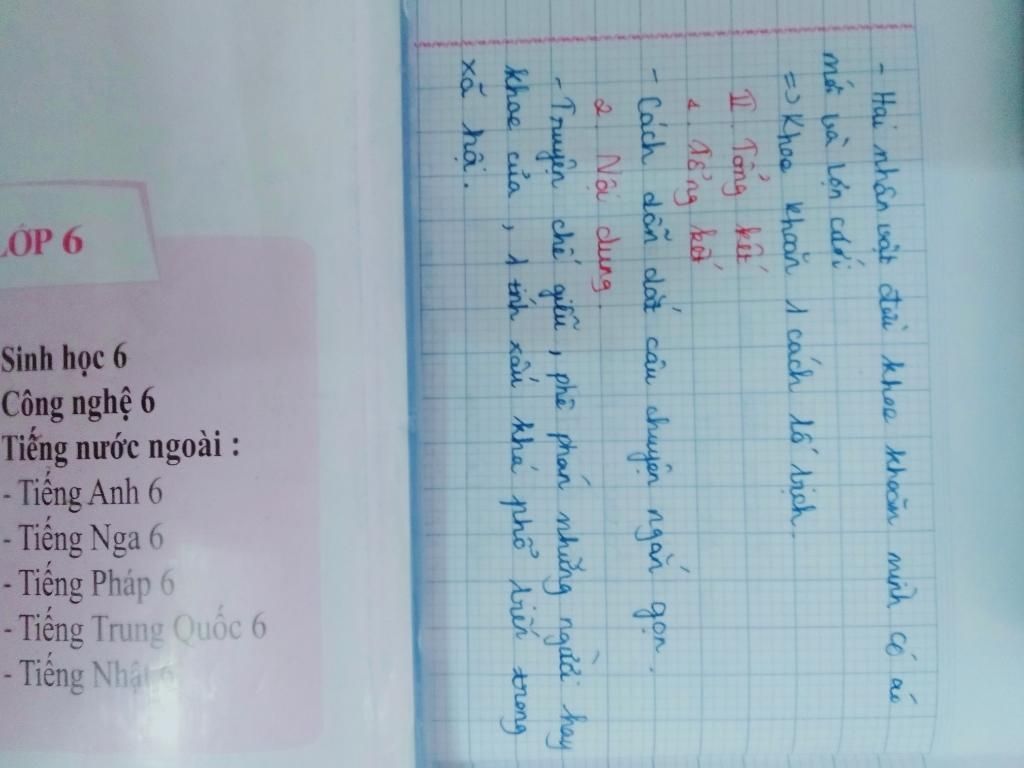 - Hai nhân vật đều khoe khoăn mình có áo
mới và lợn cưới
=> Khoe khoăn 1 cách lố bịch.
II. Tổng kết
1. Tổng kết
- Cách dẫn dắt câu chuyện ngắn gọn.
2. Nội dung.
- Truyện chế giễu, phê phán những người hay
khoe của, 1 tính xấu khá phổ biến trong
xã hội.
LỚP 6
Sinh học 6
Công nghệ 6
Tiếng nước ngoài :
- Tiếng Anh 6
- Tiếng Nga 6
- Tiếng Pháp 6
- Tiếng Trung Quốc 6
- Tiếng Nhật 6